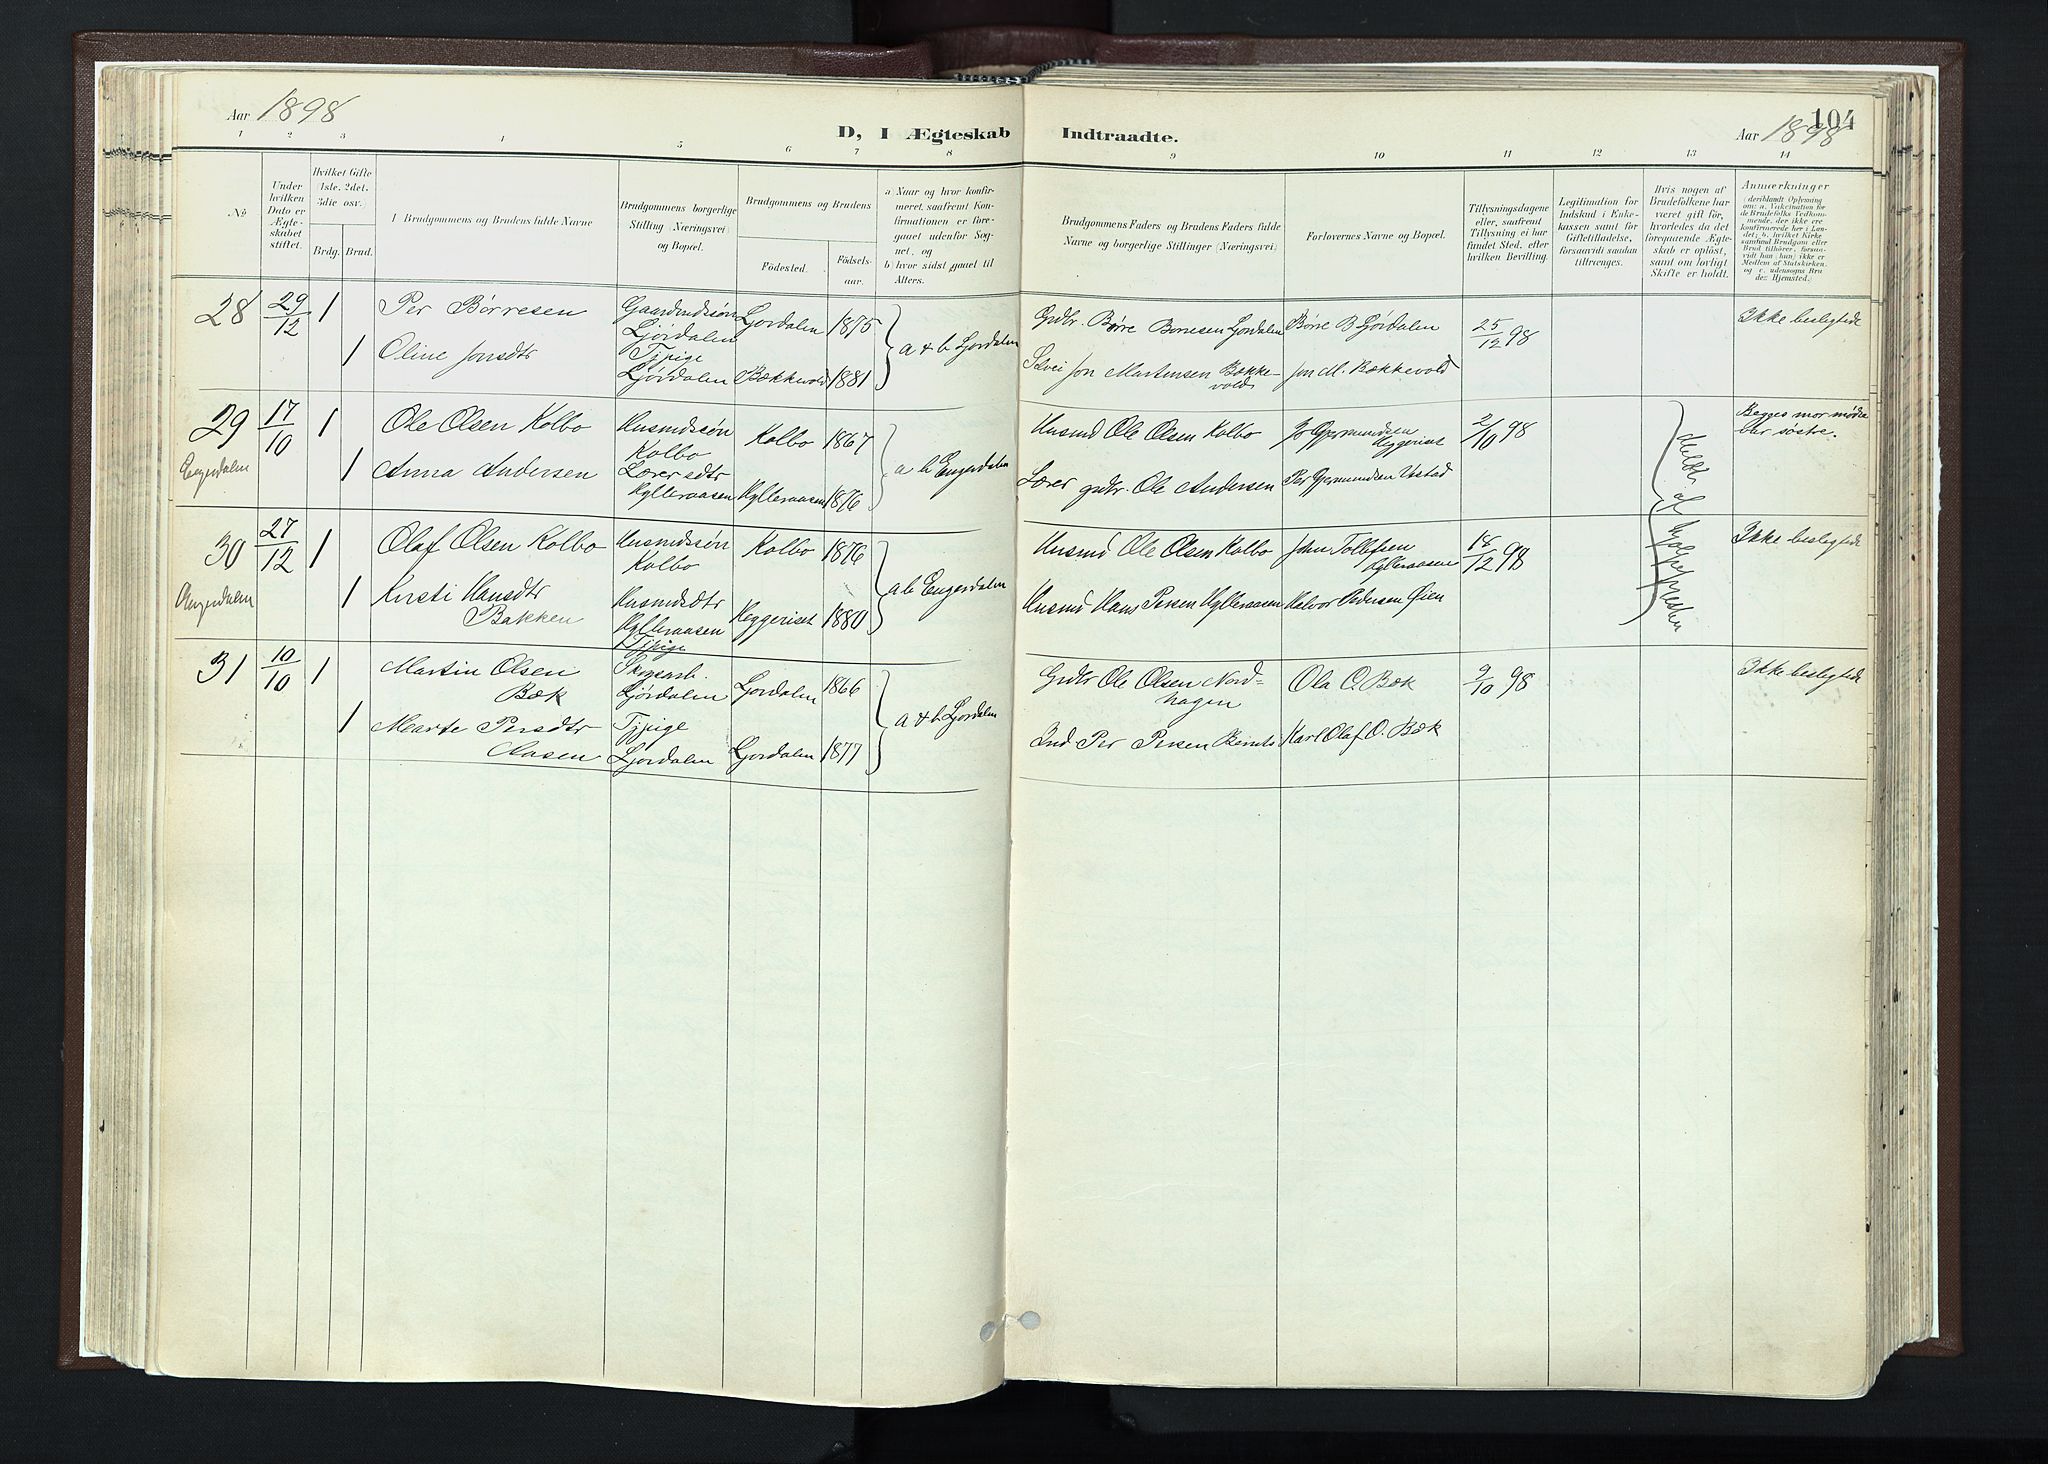 Aar 1898
D, I Ægteskab Indtraadte.
104
Aar 1898
1 2 3 4 5 6 7 8 9 10 11 12 13 14
№
Under hvilken Dato er Ægteskabet stiftet.
Hvilket Gifte (1ste, 2det, 3die osv.)
Brdg. Brud.
I Brudgommens og Brudens fulde Navne
Brudgommens borgerlige Stilling (Næringsvei) og Bopæl.
Brudgommens og Brudens
Födested. Födselsaar.
a) Naar og hvor konfirmeret, saafremt Konfirmationen er foregaaet udenfor Sognet, og
b) hvor sidst gaaet til Alters.
Brudgommens Faders og Brudens Faders fulde Navne og borgerlige Stillinger (Næringsvei)
Forlovernes Navne og Bopæl.
Tillysningsdagene eller, saafremt Tillysning ei har fundet Sted, efter hvilken Bevilling.
Legitimation for Indskud i Enkekassen samt for Giftetilladelse, forsaavidt saadan tiltrænges.
Hvis nogen af Brudefolkene har været gift før, hvorledes da det foregaaende Ægteskab er opløst, samt om lovligt Skifte er holdt.
Anmærkninger
28 29/12 1 Per Børresen Gaardmdssøn Ljørdalen Ljordalen 1875 a & b Ljordalen Grdbr. Børre Borresen Ljordalen Børre B Ljördalen 25/12 98 Ikke beslegtede
1 Oline Jonsdtr Tjpige Ljördalen Bækkevold 1881 Jon Martinsen Bækkevold Jon M. Bækkevold
29 17/10 1 Ole Olsen Kolbo Husmdssön Kolbo Kolbo 1867 a b Engerdalen Husmd Ole Olsen Kolbo Gjermundsen Heggeriset 2/10 98 Begges mor mødre var søstre.
Engerdalen 1 Anna Andersen Lærer sdtr Hylleraasen Hylleraasen 1876 Lærer grdbr. Ole Andersen Per Gjermundsen
30 27/12 1 Olaf Olsen Kolbo Husmdssön Kolbo Kolbo 1876 a b Engerdalen Husmd Ole Olsen Kolbo John Tollefsen Hylleraasen 18/12 98 Ikke beslegtede
Engerdalen 1 Kirsti Hansdtr Bakken Husmdsdtr Hylleraasen Tjpige Heggeriset 1880 Husmd Hans Persen Hylleraasen Halvor Pedersen Øien
af hjælpepresten
31 10/10 1 Martin Olsen Bæk Skogsarb. Ljørdalen Ljordalen 1866 a & b Ljordalen Grdbr Ole Olsen Nordhagen Ola O. Bæk 9/10 98 Ikke beslegtede
1 Marte Persdtr Aasen Tjpige Ljordalen Ljordalen 1877 Ind Per Persen Karl Olaf O. Bæk